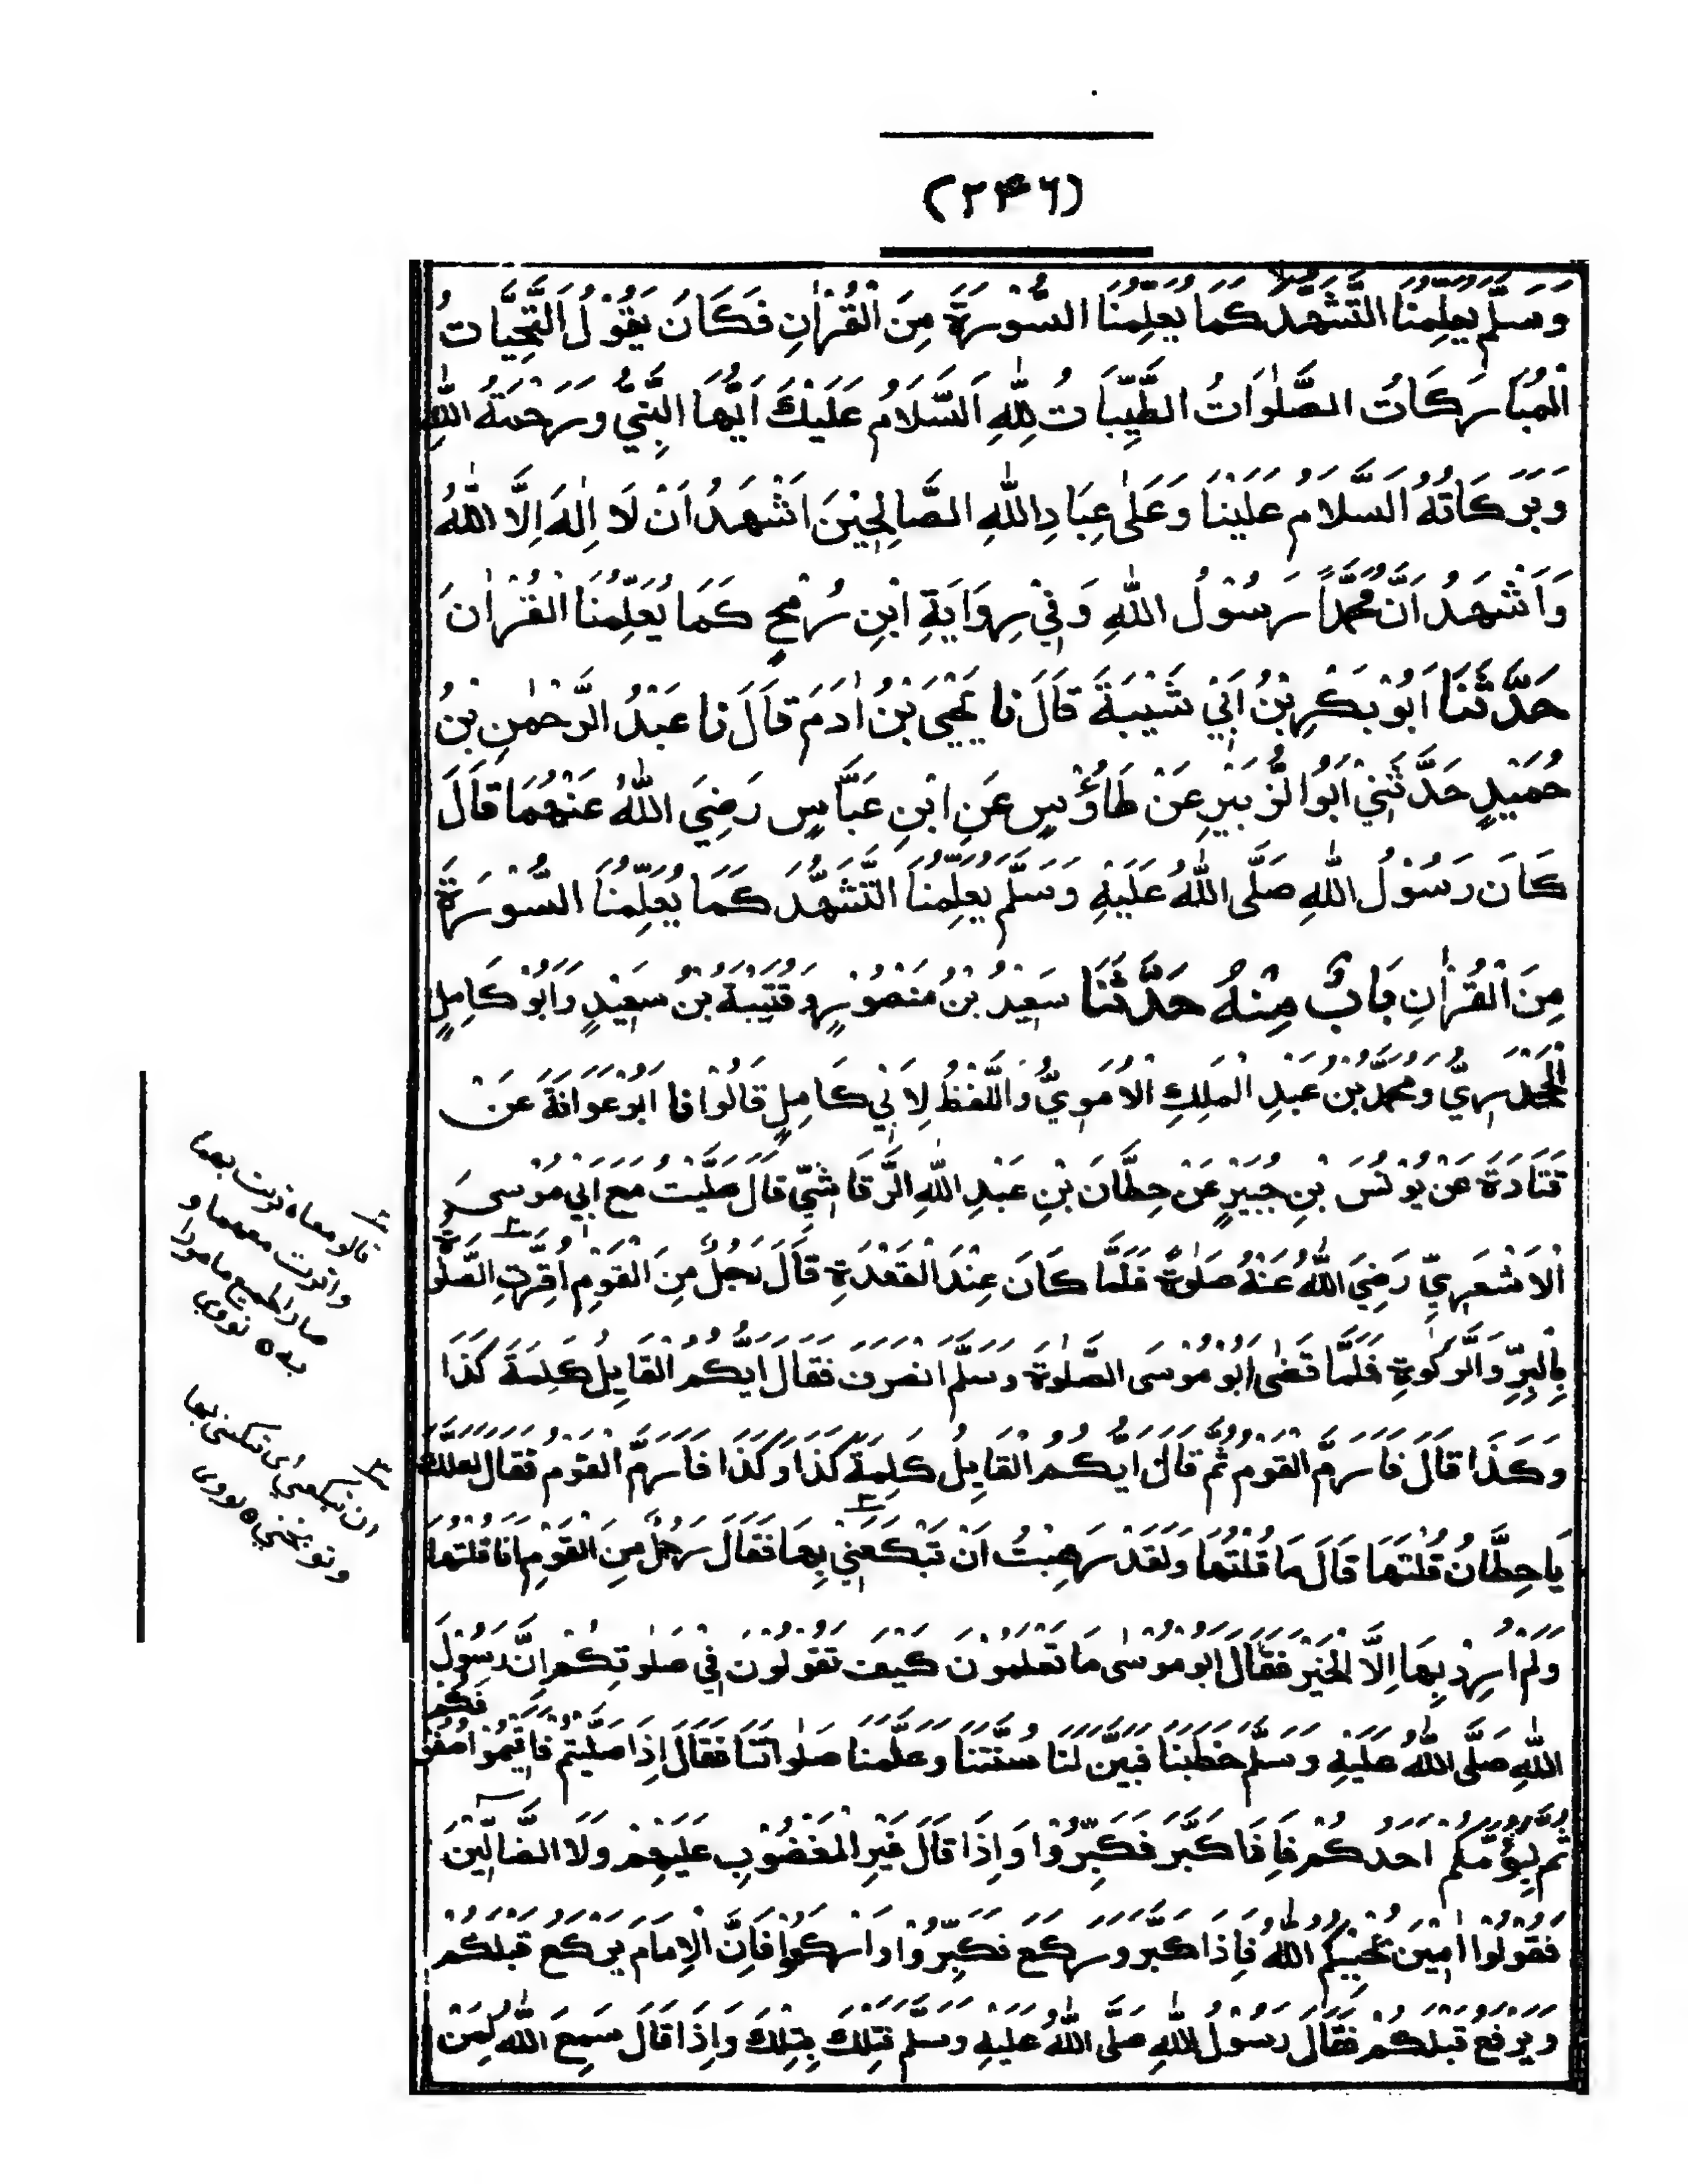 (۲۴۶)
وَسَلَّمَ يُعَلِّمُنَا التَّشَهُّدَ كَمَا يُعَلِّمُنَا السُّوْرَةَ مِنَ الْقُرْاٰنِ فَكَانَ يَقُوْلُ التَّحِيَّاتُ
الْمُبَارَكَاتُ الصَّلَوٰاتُ الطَّيِّبَاتُ لِلّٰهِ اَلسَّلَامُ عَلَيْكَ اَيُّهَا النَّبِيُّ وَرَحْمَةُ اللّٰهِ
وَبَرَكَاتُهُ السَّلَامُ عَلَيْنَا وَعَلٰى عِبَادِ اللّٰهِ الصَّالِحِيْنَ اَشْهَدُ اَنْ لَا اِلٰهَ اِلَّا اللّٰهُ
وَاَشْهَدُ اَنَّ مُحَمَّدًا رَسُوْلُ اللّٰهِ وَفِيْ رِوَايَةِ ابْنِ رُمْحٍ كَمَا يُعَلِّمُنَا الْقُرْاٰنَ
حَدَّثَنَا اَبُوْ بَكْرِ بْنُ اَبِيْ شَيْبَةَ قَالَ نَا يَحْيَى بْنُ اٰدَمَ قَالَ نَا عَبْدُ الرَّحْمٰنِ بْنُ
حُمَيْدٍ حَدَّثَنِيْ اَبُو الزُّبَيْرِ عَنْ طَاؤُسٍ عَنِ ابْنِ عَبَّاسٍ رَضِيَ اللّٰهُ عَنْهُمَا قَالَ
كَانَ رَسُوْلُ اللّٰهِ صَلَّى اللّٰهُ عَلَيْهِ وَسَلَّمَ يُعَلِّمُنَا التَّشَهُّدَ كَمَا يُعَلِّمُنَا السُّوْرَةَ
مِنَ الْقُرْاٰنِ بَابٌ مِنْهُ حَدَّثَنَا سَعِيْدُ بْنُ مَنْصُوْرٍ وَقُتَيْبَةُ بْنُ سَعِيْدٍ وَاَبُوْ كَامِلٍ
الْجَحْدَرِيُّ وَمُحَمَّدُ بْنُ عَبْدِ الْمَلِكِ الْاُمَوِيُّ وَاللَّفْظُ لِاَبِيْ كَامِلٍ قَالُوْا نَا اَبُوْ عَوَانَةَ عَنْ
قَتَادَةَ عَنْ يُوْنُسَ بْنِ جُبَيْرٍ عَنْ حِطَّانَ بْنِ عَبْدِ اللّٰهِ الرَّقَاشِيِّ قَالَ صَلَّيْتُ مَعَ اَبِيْ مُوْسَى
الْاَشْعَرِيِّ رَضِيَ اللّٰهُ عَنْهُ صَلٰوةً فَلَمَّا كَانَ عِنْدَ الْقَعْدَةِ قَالَ رَجُلٌ مِنَ الْقَوْمِ اُقِرَّتِ الصَّلٰوةُ
بِالْبِرِّ وَالزَّكٰوةِ فَلَمَّا قَضٰى اَبُوْ مُوْسَى الصَّلٰوةَ وَسَلَّمَ انْصَرَفَ فَقَالَ اَيُّكُمُ الْقَايِلُ كَلِمَةَ كَذَا
وَكَذَا قَالَ فَاَرَمَّ الْقَوْمُ ثُمَّ قَالَ اَيُّكُمُ الْقَايِلُ كَلِمَةَ كَذَا وَكَذَا فَاَرَمَّ الْقَوْمُ فَقَالَ لَعَلَّكَ
يَا حِطَّانُ قُلْتَهَا قَالَ مَا قُلْتُهَا وَلَقَدْ رَهِبْتُ اَنْ تَبْكَعَنِيْ بِهَا فَقَالَ رَجُلٌ مِنَ الْقَوْمِ اَنَا قُلْتُهَا
وَلَمْ اُرِدْ بِهَا اِلَّا الْخَيْرَ فَقَالَ اَبُوْ مُوْسٰى مَا تَعْلَمُوْنَ كَيْفَ تَقُوْلُوْنَ فِيْ صَلٰوتِكُمْ اِنَّ رَسُوْلَ
اللّٰهِ صَلَّى اللّٰهُ عَلَيْهِ وَسَلَّمَ خَطَبَنَا فَبَيَّنَ لَنَا سُنَّتَنَا وَعَلَّمَنَا صَلٰواتَنَا فَقَالَ اِذَا صَلَّيْتُمْ فَاَقِيْمُوْا صُفُوْفَكُمْ
ثُمَّ لِيَؤُمَّكُمْ اَحَدُكُمْ فَاِذَا كَبَّرَ فَكَبِّرُوْا وَاِذَا قَالَ غَيْرِ الْمَغْضُوْبِ عَلَيْهِمْ وَلَا الضَّالِّيْنَ
فَقُوْلُوْا اٰمِيْنَ يُحِبُّكُمُ اللّٰهُ فَاِذَا كَبَّرَ وَرَكَعَ فَكَبِّرُوْا وَارْكَعُوْا فَاِنَّ الْاِمَامَ يَرْكَعُ قَبْلَكُمْ
وَيَرْفَعُ قَبْلَكُمْ فَقَالَ رَسُوْلُ اللّٰهِ صَلَّى اللّٰهُ عَلَيْهِ وَسَلَّمَ فَتِلْكَ بِتِلْكَ وَاِذَا قَالَ سَمِعَ اللّٰهُ لِمَنْ
قالو معناه قرنت بهما
واقرت معهما و
صار الجميع مامورا
به ٥ نووي
ان تبكعني اى تبكتني بها
وتوبخني ٥ نووي